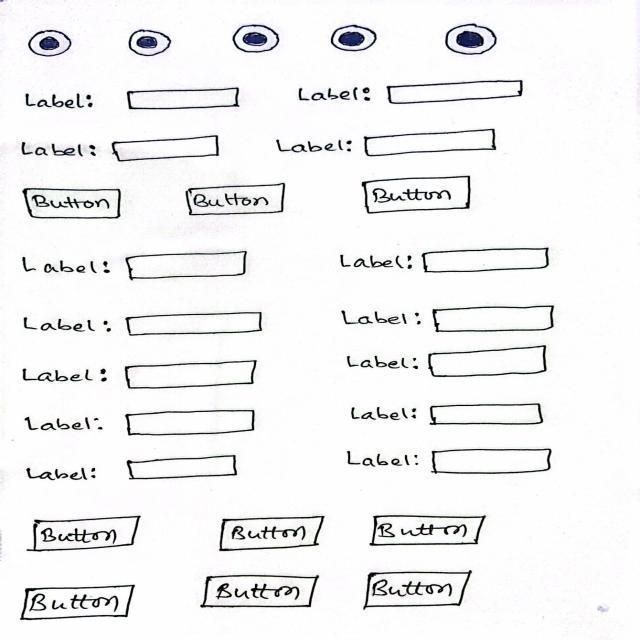 Label: Label:
Label: Label:
Button Button Button
Label: Label:
Label: Label:
Label: Label:
Label: Label:
Label: Label:
Button Button Button
Button Button Button